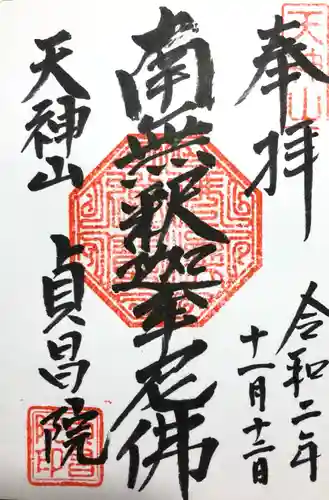 奉拝
天神山
令和二年
十一月十二日
南無釈迦牟尼佛
天神山
貞昌院